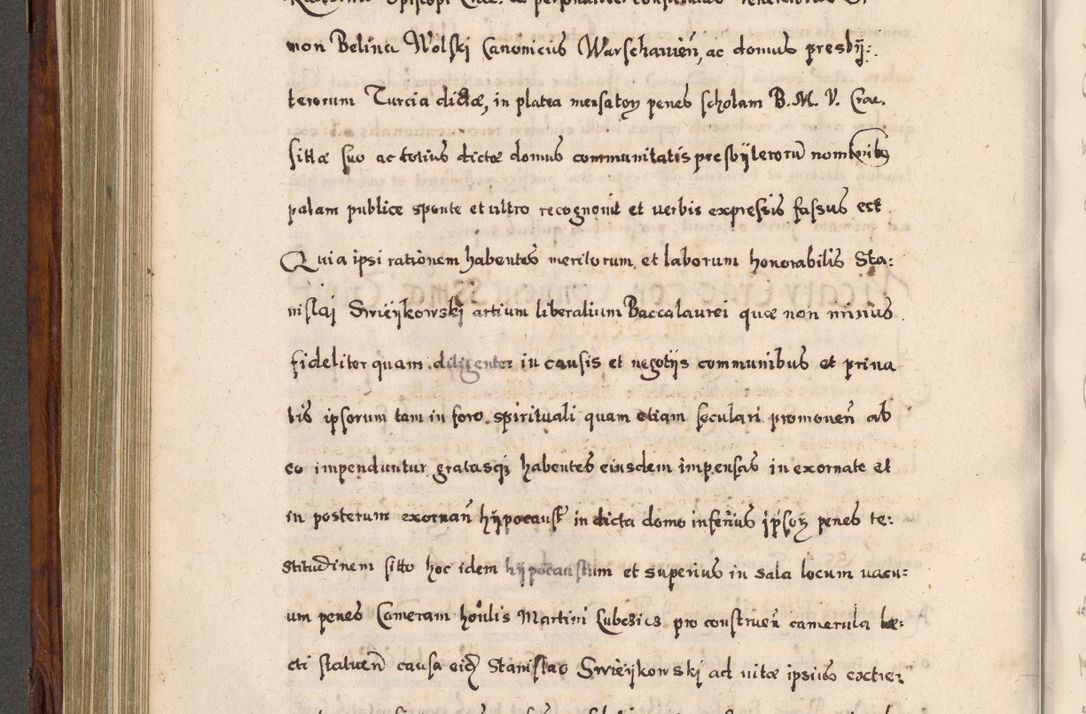 non Belina Wolski Canonicus Warschauień, ac domus presbÿ:
terorum Turcia dictæ, in platea mensatorꝫ penes scholam B. M. V. Crac.
sittæ suo ac totius dictæ domus communitatis presbÿterorū nominibꝫ
palam publice sponte et ultro recognouit et uerbis expressis fassus est
Quia ipsi rationem habentes meritorum et laborum honorabilis Sta:
nislaj Swieÿkowskj artium liberalium Baccalaurei quæ non minus
fideliter quam diligenter in causis et negotÿs communibus et priua
tis ipsorum tam in foro spirituali quam etiam seculari promoueń ab
eo impenduntur gratasqꝫ habentes eiusdem impensas in exornate et
in posterum exornań hÿpocaust in dicta domo inferius ipsoꝝ penes te:
stitudinem sitto hoc idem hÿpocaustum et superius in sala locum uacu:
um penes Cameram hońlis Martini Lubesics pro construeń camerula le:
cti statueń causa eidꝫ Stanislao Swieÿkowskj ad uitæ ipsius extre: